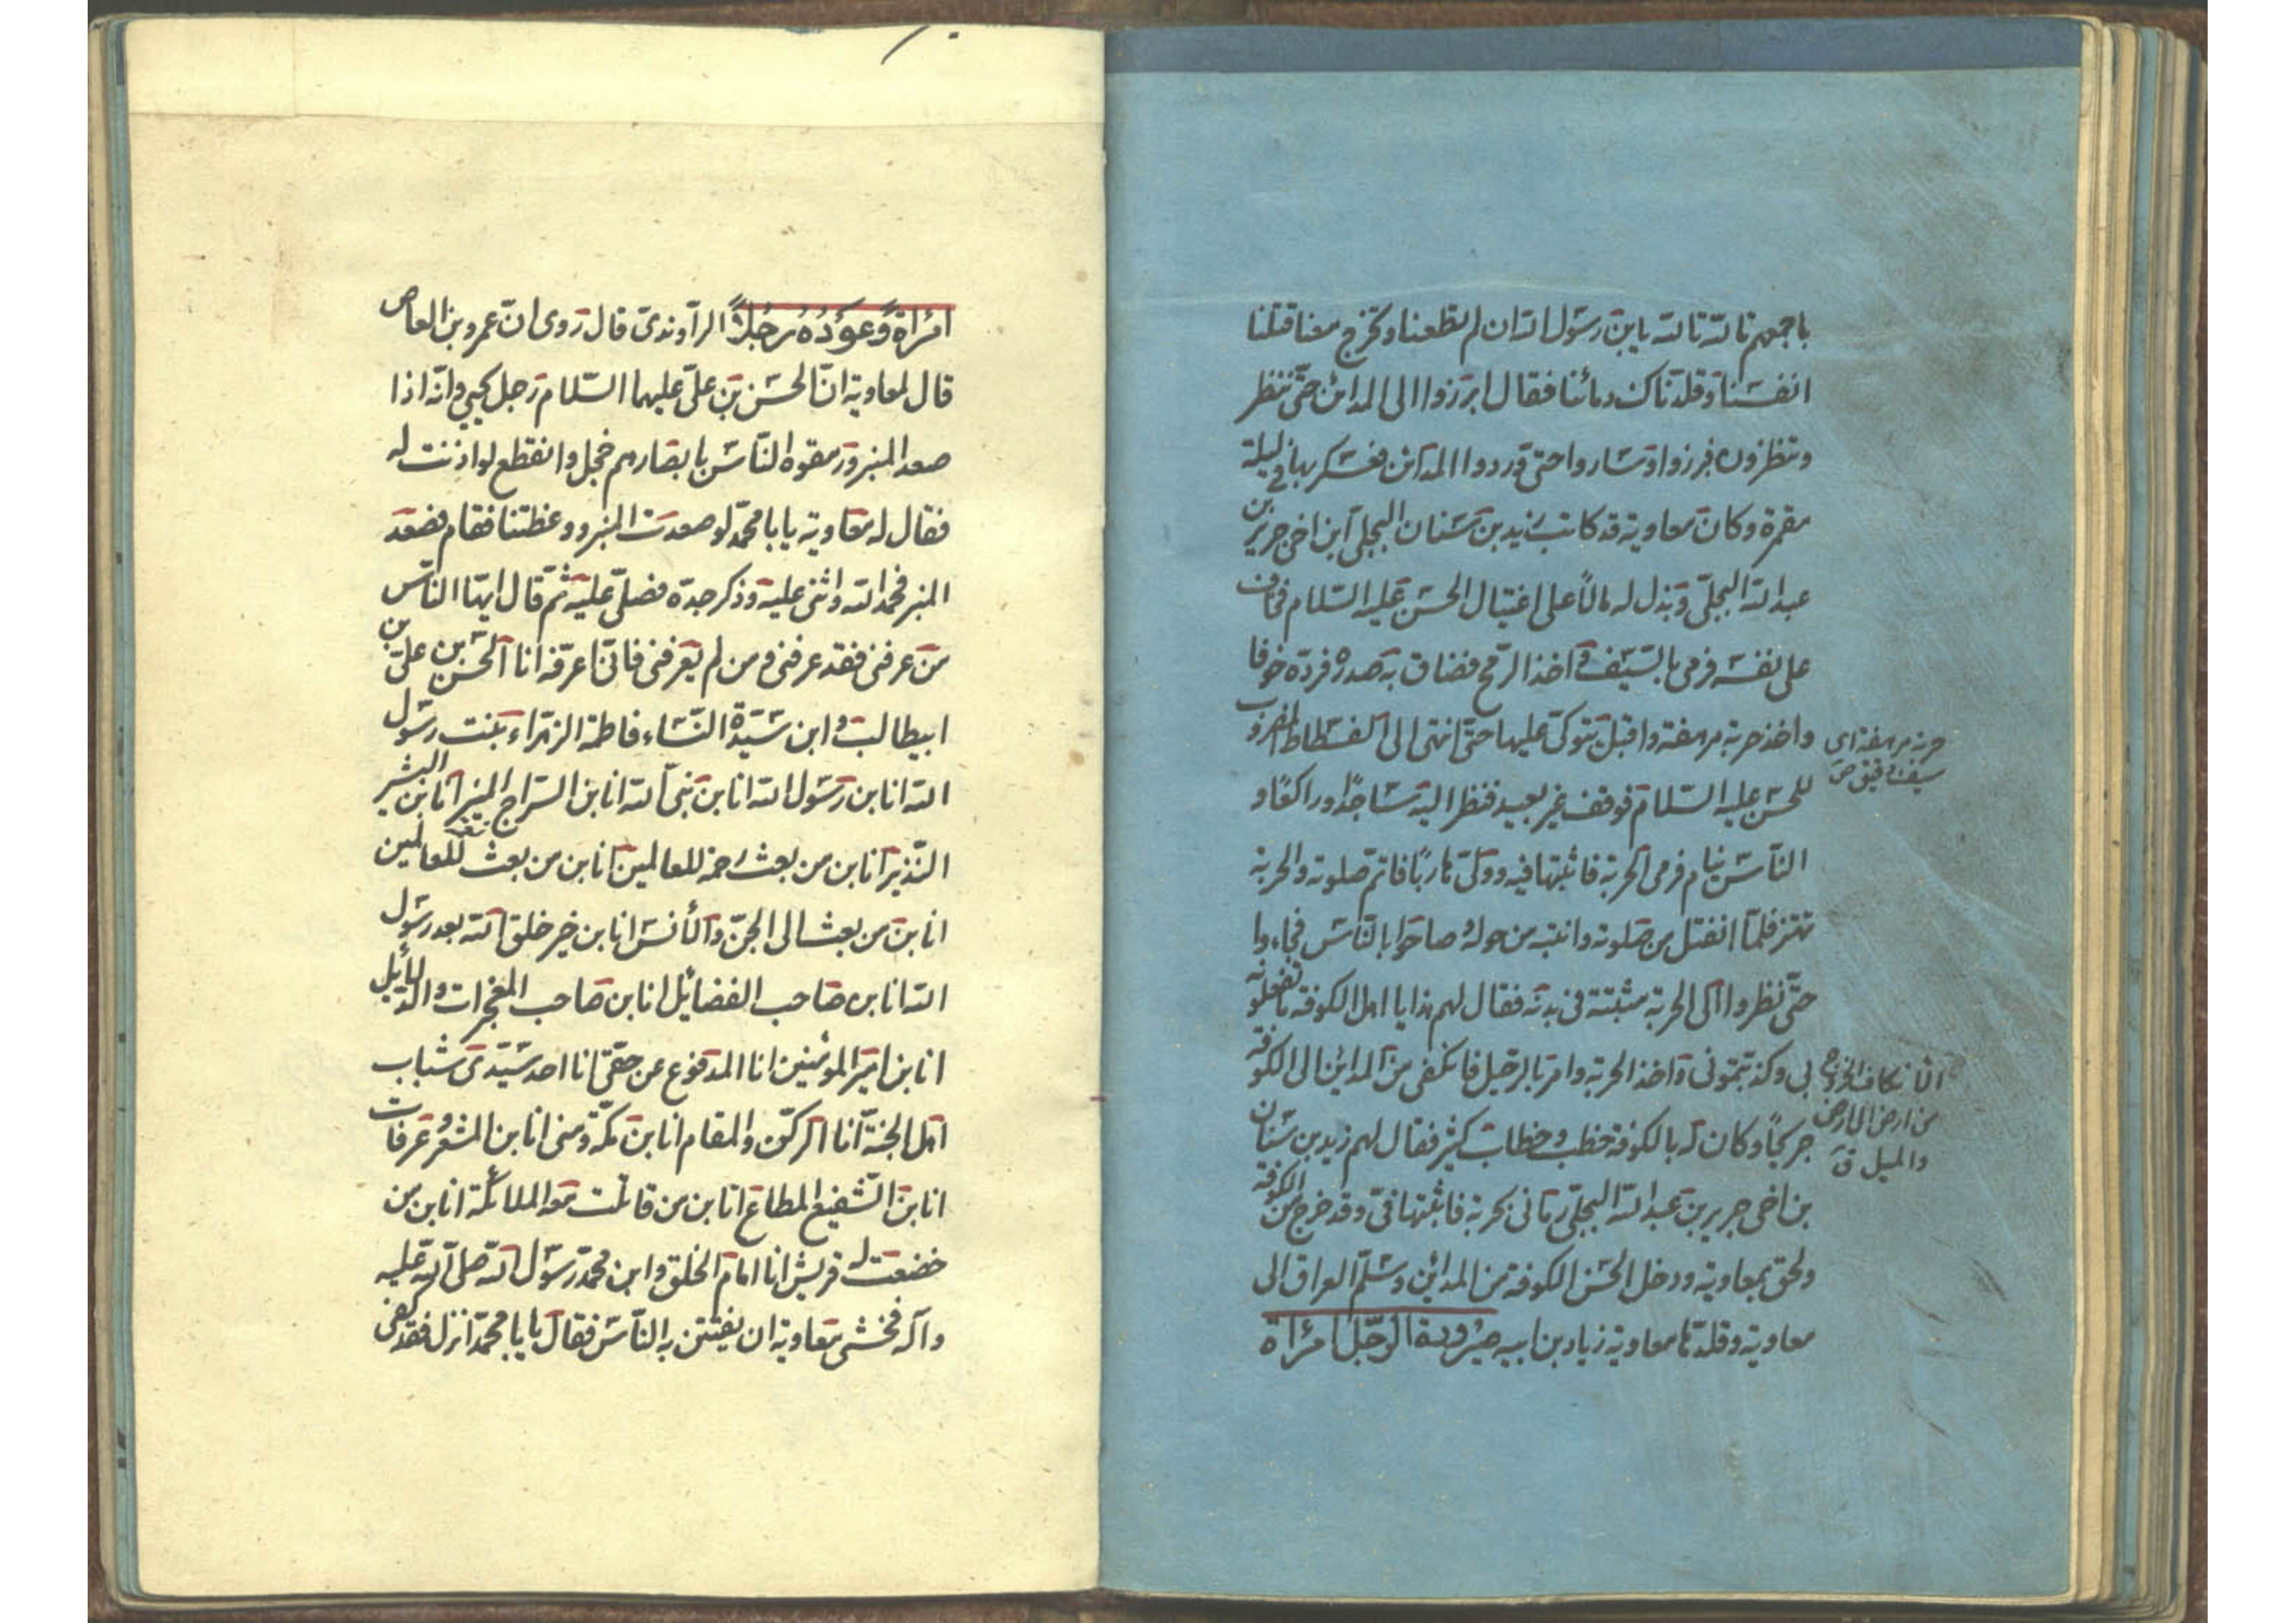 باجمعهم تالله تالله يابن رسول الله ان لم تطعنا وتخرج معنا قتلنا
انفسنا وقلدناك دمائنا فقال ابرزوا الى المدائن حتى ننظر
وتنظرون فبرزوا وساروا حتى وردوا المدائن فعسكر بها في ليلة
مقمرة وكان معاوية قد كاتب زيد بن سنان البجلي ابن اخي جرير بن
عبد الله البجلي وبذل له مالاً على اغتيال الحسن عليه السلام فخاف
على نفسه فرمى بالسيف واخذ الرمح فضاق به صدره فرده خوفا
واخذ حربة مرهفة واقبل يتوكى عليها حتى انتهى الى الفسطاط المضروب
حربة مرهفة اى
سيف دقيق ص
للحسن عليه السلام فوقف غير بعيد فنظر اليه ساجدًا وراكعًا و
الناس نيام فرمى الحربة فاثبتها فيه وولى هاربًا فاتم صلوته والحربة
تهتز فلما انفتل من صلوته وانتبه من حوله وصاحوا بالناس فجاءوا
حتى نظروا الى الحربة مثبتة في بدنه فقال لهم هذا يا اهل الكوفة ما تفعلونه
بي وكذبتموني واخذ الحربة وامر بالرحيل فانكفى من المداين الى الكوفة
من ارض الى ارض
والميل ق
جريحًا وكان له بالكوفة خطب وخطاب كثير فقال لهم زيد بن سنان
بن اخي جرير بن عبد الله البجلي رماني بحربة فاثبتها في وقد خرج من الكوفة
ولحق بمعاوية ودخل الحسن الكوفة من المدائن وسلم العراق الى
معاوية وقلدها معاوية زياد بن ابيه صيرورة الرجل امراة
امراةً وعوده رجلاً الراوندي قال روى ان عمرو بن العاص
قال لمعاوية ان الحسن بن علي عليهما السلام رجل حيي وانه اذا
صعد المنبر ورمقوه الناس بابصارهم خجل وانقطع لو اذنت له
فقال له معاوية يابا محمد لو صعدت المنبر ووعظتنا فقام فصعد
المنبر فحمد الله واثنى عليه وذكر جده فصلى عليه ثم قال ايها الناس
من عرفني فقد عرفني ومن لم يعرفني فانى اعرفه انا الحسن بن علي بن
ابيطالب وابن سيدة النساء فاطمة الزهراء بنت رسول
الله انا بن رسول الله انا بن نبي الله انا بن السراج المنير انا بن البشير
النذير انا بن من بعث رحمة للعالمين انا بن من بعث للعالمين
انا بن من بعث الى الجن والانس انا بن خير خلق الله بعد رسول
الله انا بن صاحب الفضايل انا بن صاحب المعجزات والدلايل
انا بن امير المومنين انا المدفوع عن حقي انا احد سيدى شباب
اهل الجنة انا الركن والمقام انا بن مكة ومنى انا بن المشعر وعرفات
انا بن الشفيع المطاع انا بن من قاتلت معه الملائكة انا بن من
خضعت له قريش انا امام الخلق وابن محمد رسول الله صلى الله عليه
وآله فخشى معاوية ان يفتتن به الناس فقال يابا محمد انزل فقد كفى